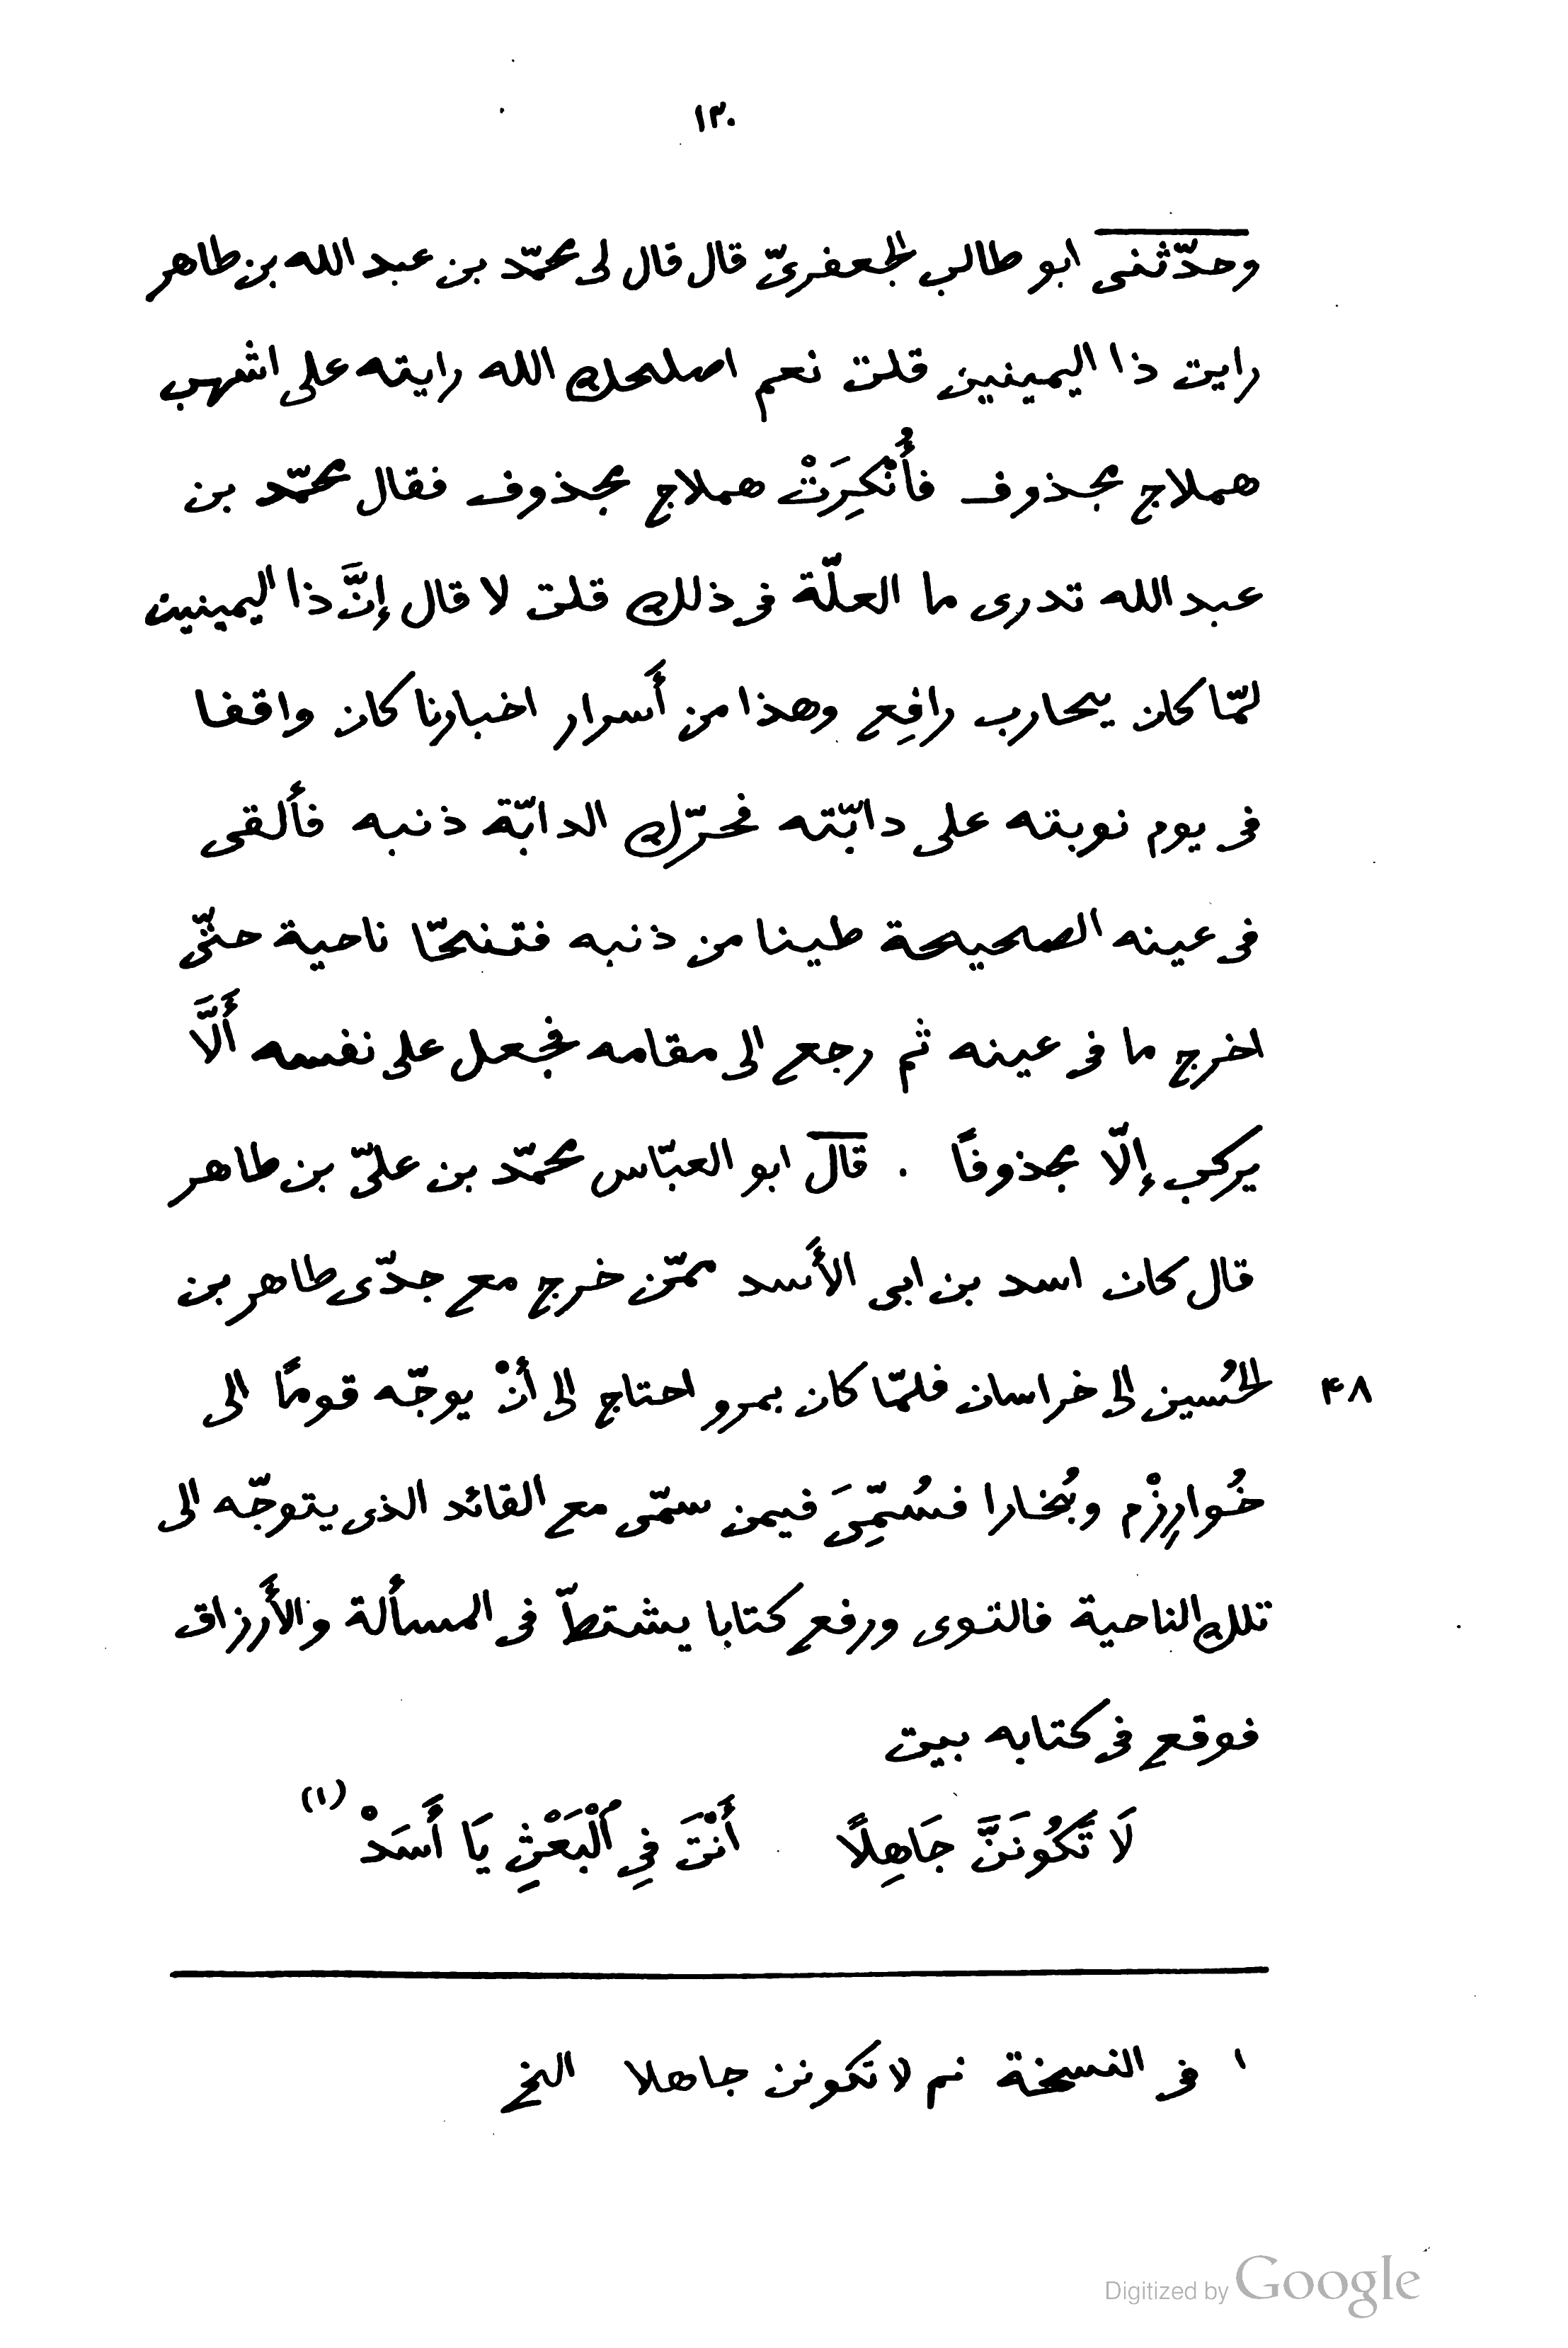 ١٣٠
وحدّثنى ابو طالب الجعفرىّ قال قال لى محمّد بن عبد الله بن طاهر
رايت ذا اليمينين قلت نعم اصلحك الله رايته على اشهب
هملاج مجذوف فأُنْكِرَتْ هملاج مجذوف فقال محمّد بن
عبد الله تدرى ما العلّة فى ذلك قلت لا قال إنَّ ذا اليمينين
لمّا كان يحارب رافِع وهذا من أَسرار اخبارنا كان واقفا
فى يوم نوبته على دابّته فحرّك الدابّة ذنبه فألقى
فى عينه الصحيحة طينا من ذنبه فتنحّا ناحية حتّى
اخرج ما فى عينه ثم رجع الى مقامه فجعل على نفسه أَلَّا
يركب إلّا مجذوفاً . قال ابو العبّاس محمّد بن علىّ بن طاهر
قال كان اسد بن ابى الأَسد ممّن خرج مع جدّى طاهر بن
الحُسين الى خراسان فلمّا كان بمرو احتاج الى أنْ يوجّه قوماً الى
٤٨
خُوارِزْم وبُخارا فسُمِّىَ فيمن سمّى مع القائد الذى يتوجّه الى
تلك الناحية فالتوى ورفع كتابا يشتطّ فى المسألة والأَرزاق
فوقع فى كتابه بيت
لَا تَكُونَنَّ جَاهِلاً أَنْتَ فِى ٱلْبَعْثِ يَا أَسَدْ (١)
١ فى النسخة نم لا تكونن جاهلا الخ
Digitized by Google